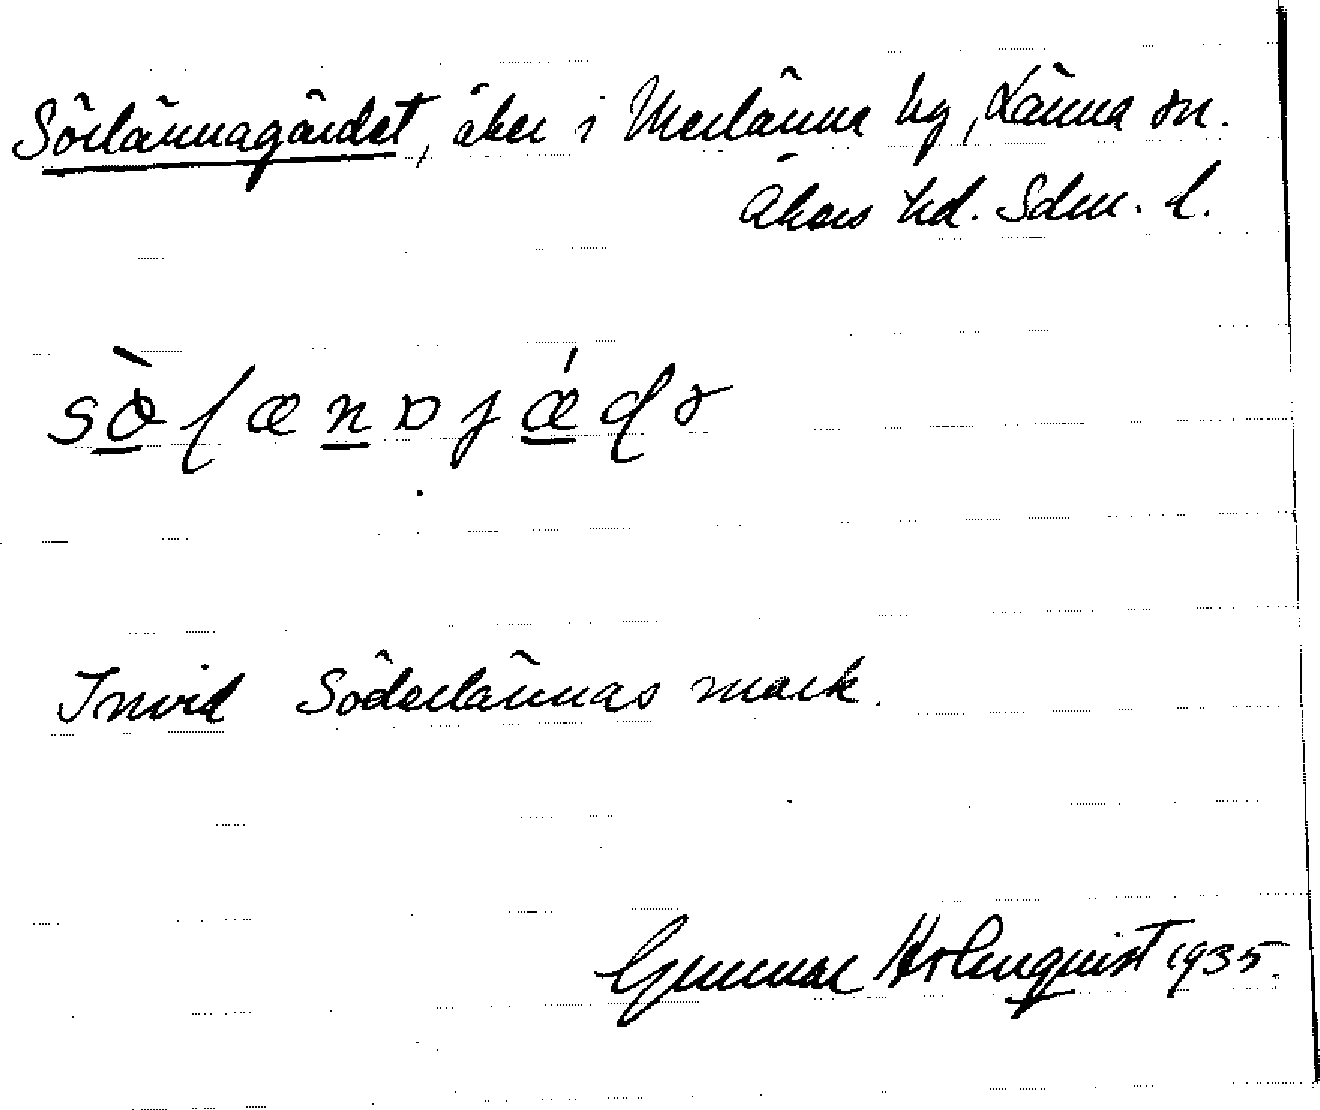 Sörlännagärdet, åker i Merlänna hg, Länna sn.
Åkers hd. Sdm. l.
Invid Söderlännas mark.
Gunnar Holmquist 1935.